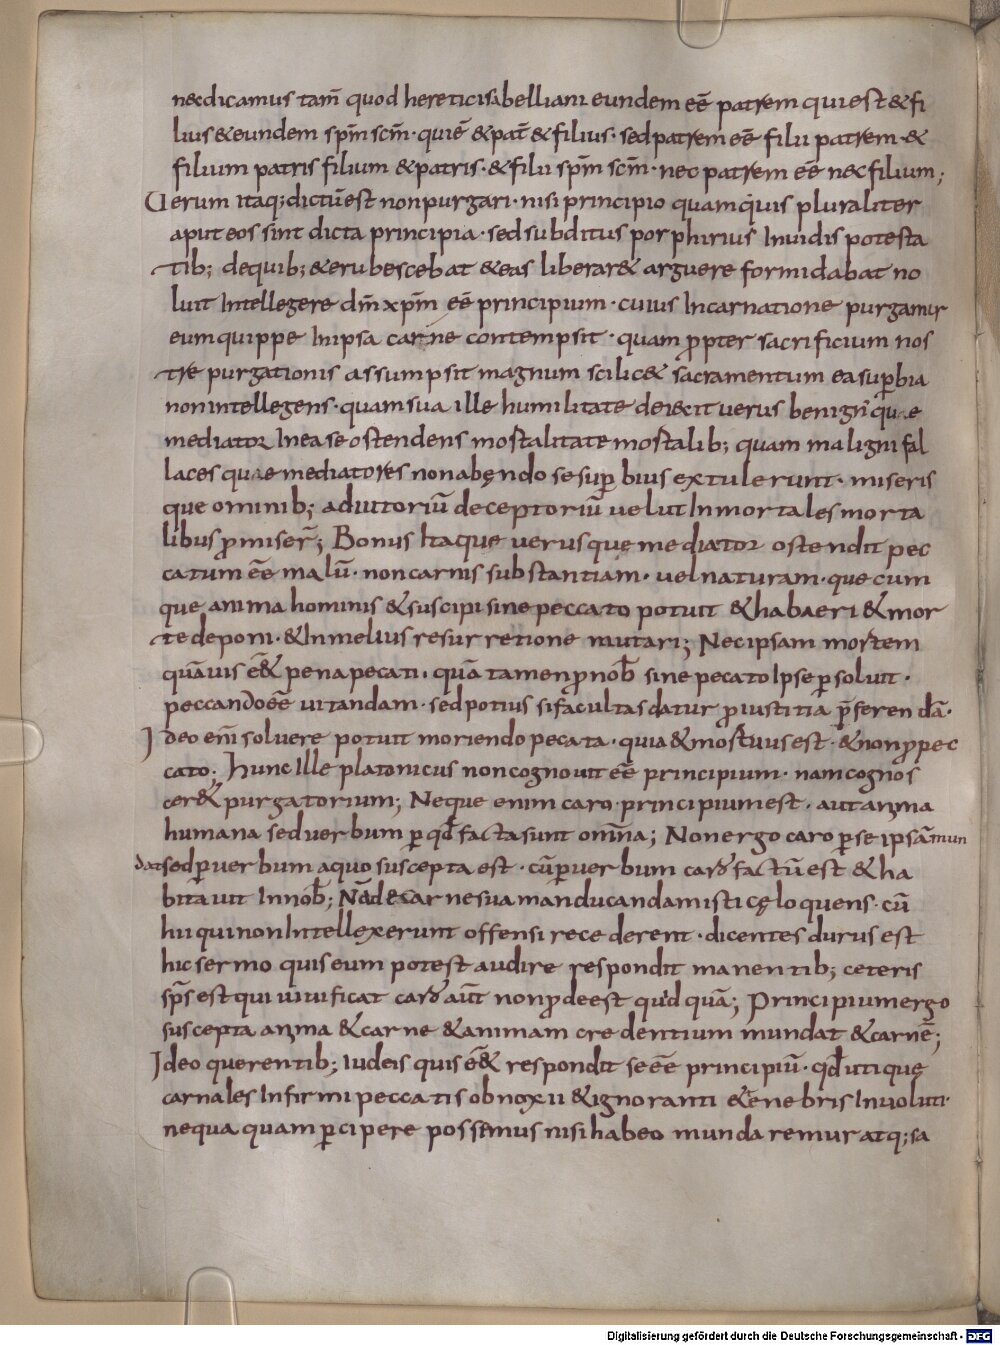 necdicamus tam̄ quod heretici sabelliani eundem eē patrem qui est & fi
lius & eundem sp̄m sc̄m· qui ē & pat̄ & filius· sed patrem eē filii patrem· &
filium patris filium & patris· & filii sp̄m sc̄m· nec patrem eē nec filium;
Uerum itaq; dictū est non purgari· nisi principio quamquis pluraliter
aput eos sint dicta principia· sed subditus porphirius Inuidis potesta
tib; de quib; & erubescebat & eas liberar& arguere formidabat no
luit Intellegere dm̄ xp̄m eē principium· cuius Incarnatione purgamur
eum quippe In ipsa carne contempsit· quam ꝓpter sacrificium nos
tre purgationis assumpsit magnum scilic& sacramentum ea suꝑbia
non intellegens· quam sua ille humilitate deiecit uerus benign' que
mediator In ea se ostendens mostalitate mostalib; quam maligni fal
laces quae mediatores non abendo se suꝑbius extulerunt· miseris
que ominib; adiutoriū deceptoriū uelut Inmortales morta
libus ꝓmiser̄; Bonus Itaque uerusque mediator ostendit pec
catum eē malū· non carnis substantiam· uel naturam· que cum
que anima hominis & suscipi sine peccato potuit & habaeri & mor
te deponi· & In melius resurretione mutari; Nec ipsam mortem
quāuis ēē& pena pecati· quā tamen ꝓ nob̄ sine pecato Ipse ꝑsoluit·
peccando eē uitandam· sed potius si facultas datur ꝓ iustitia p̄ferendā·
Ideo enī soluere potuit moriendo pecata· quia & mostuus est· & non ꝓ pec
cato; Hunc Ille platonicus non cognouit eē principium· nam cognos
cer& purgatorium; Neque enim caro principium est· aut anima
humana sed uerbum ꝑ qd̄ facta sunt omn̄a; Non ergo caro ꝑ se ipsā mun
dat sed ꝑ uerbum a quo suscepta est· cū ꝑ uerbum caro factū est & ha
bitauit In nob̄; Nā de carne sua manducanda misticę loquens· cū
hii qui non Intellexerunt offensi recederent· dicentes durus est
hic sermo quis eum potest audire respondit manentib; ceteris
sp̄s est qui uiuificat caro aūt non ꝓdeest quidquā; Principium ergo
suscepta anima & carne & animam credentium mundat & carnē;
Ideo querentib; Iudeis quis ēē& respondit se eē principiū· qd̄ utique
carnales Infirmi peccatis obnoxii & ignoranti & enebris Inuoluti·
nequaquam ꝑcipere possemus nisi habeo mundaremur atq; sa
Digitalisierung gefördert durch die Deutsche Forschungsgemeinschaft - DFG